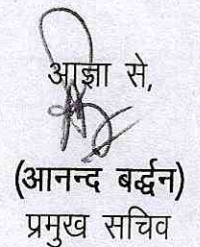 आज्ञा से,
(आनन्द बर्द्धन)
प्रमुख सचिव